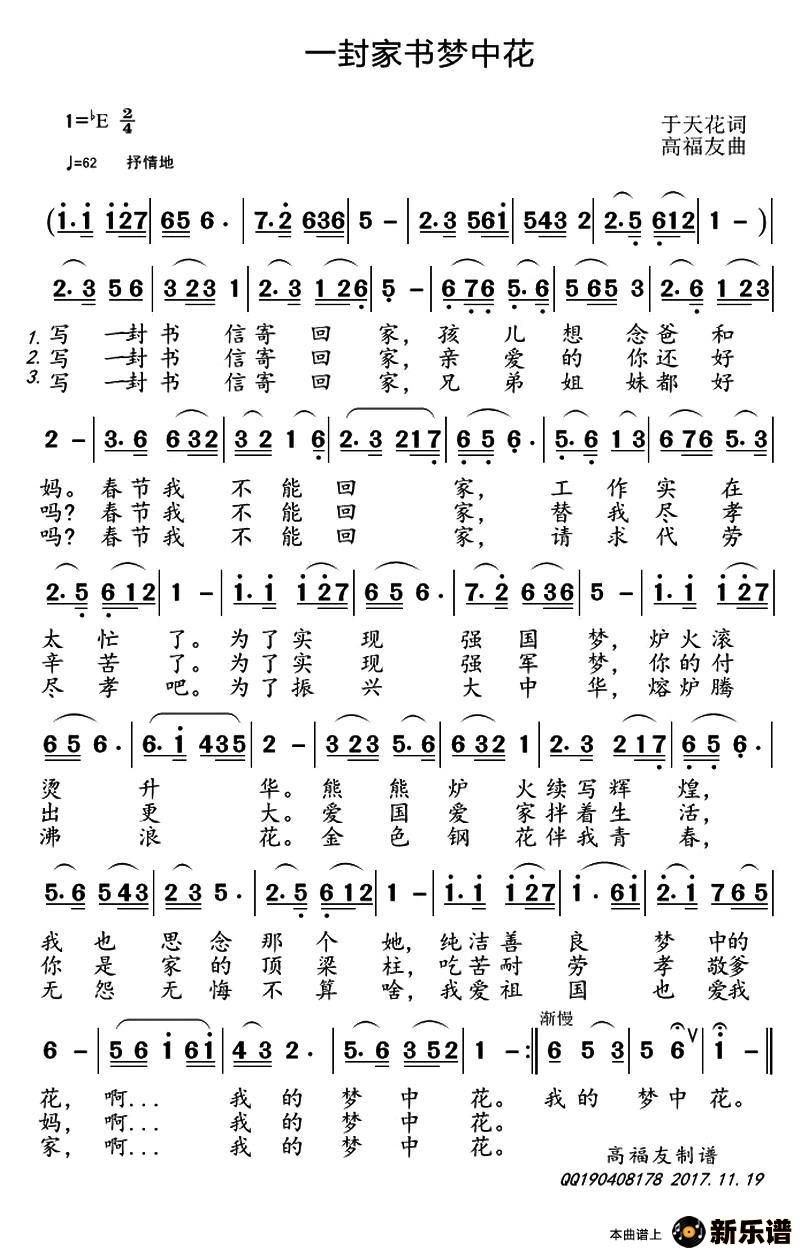 一封家书梦中花
1=♭E 2/4
于天花词
高福友曲
♩=62 抒情地
(1.1 127 65 6. 7.2 636 5 - 2.3 561 543 2 2.5 612 1 -)
2.3 56 323 1 2.3 126 5 - 6 76 5.6 565 3 2.6 123
1. 写一封书信寄回家，孩儿想念爸和
2. 写一封书信寄回家，亲爱的你还好
3. 写一封书信寄回家，兄弟姐妹都好
2 - 3.6 632 32 16 2.3 217 65 6. 5.6 13 676 5.3
妈。春节我不能回家，工作实在
吗？春节我不能回家，替我尽孝
吗？春节我不能回家，请求代劳
2.5 612 1 - 1.1 127 65 6. 7.2 636 5 - 1.1 127
太忙了。为了实现强国梦，炉火滚
辛苦了。为了实现强军梦，你的付
尽孝吧。为了振兴大中华，熔炉腾
65 6. 6.1 435 2 - 323 5.6 632 1 2.3 217 65 6.
烫升华。熊熊炉火续写辉煌，
出更大。爱国爱家拌着生活，
沸浪花。金色钢花伴我青春，
5.6 543 23 5. 2.5 612 1 - 1.1 127 1. 61 2.1 765
我也思念那个她，纯洁善良梦中的
你是家的顶梁柱，吃苦耐劳孝敬爹
无怨无悔不算啥，我爱祖国也爱我
渐慢
6 - 56 1 61 43 2. 5.6 352 1 -:‖ 6 53 5 6 ∨ 1 - ‖
花，啊... 我的梦中花。我的梦中花。
妈，啊... 我的梦中花。
家，啊... 我的梦中花。
高福友制谱
QQ190408178 2017.11.19
本曲谱上 新乐谱